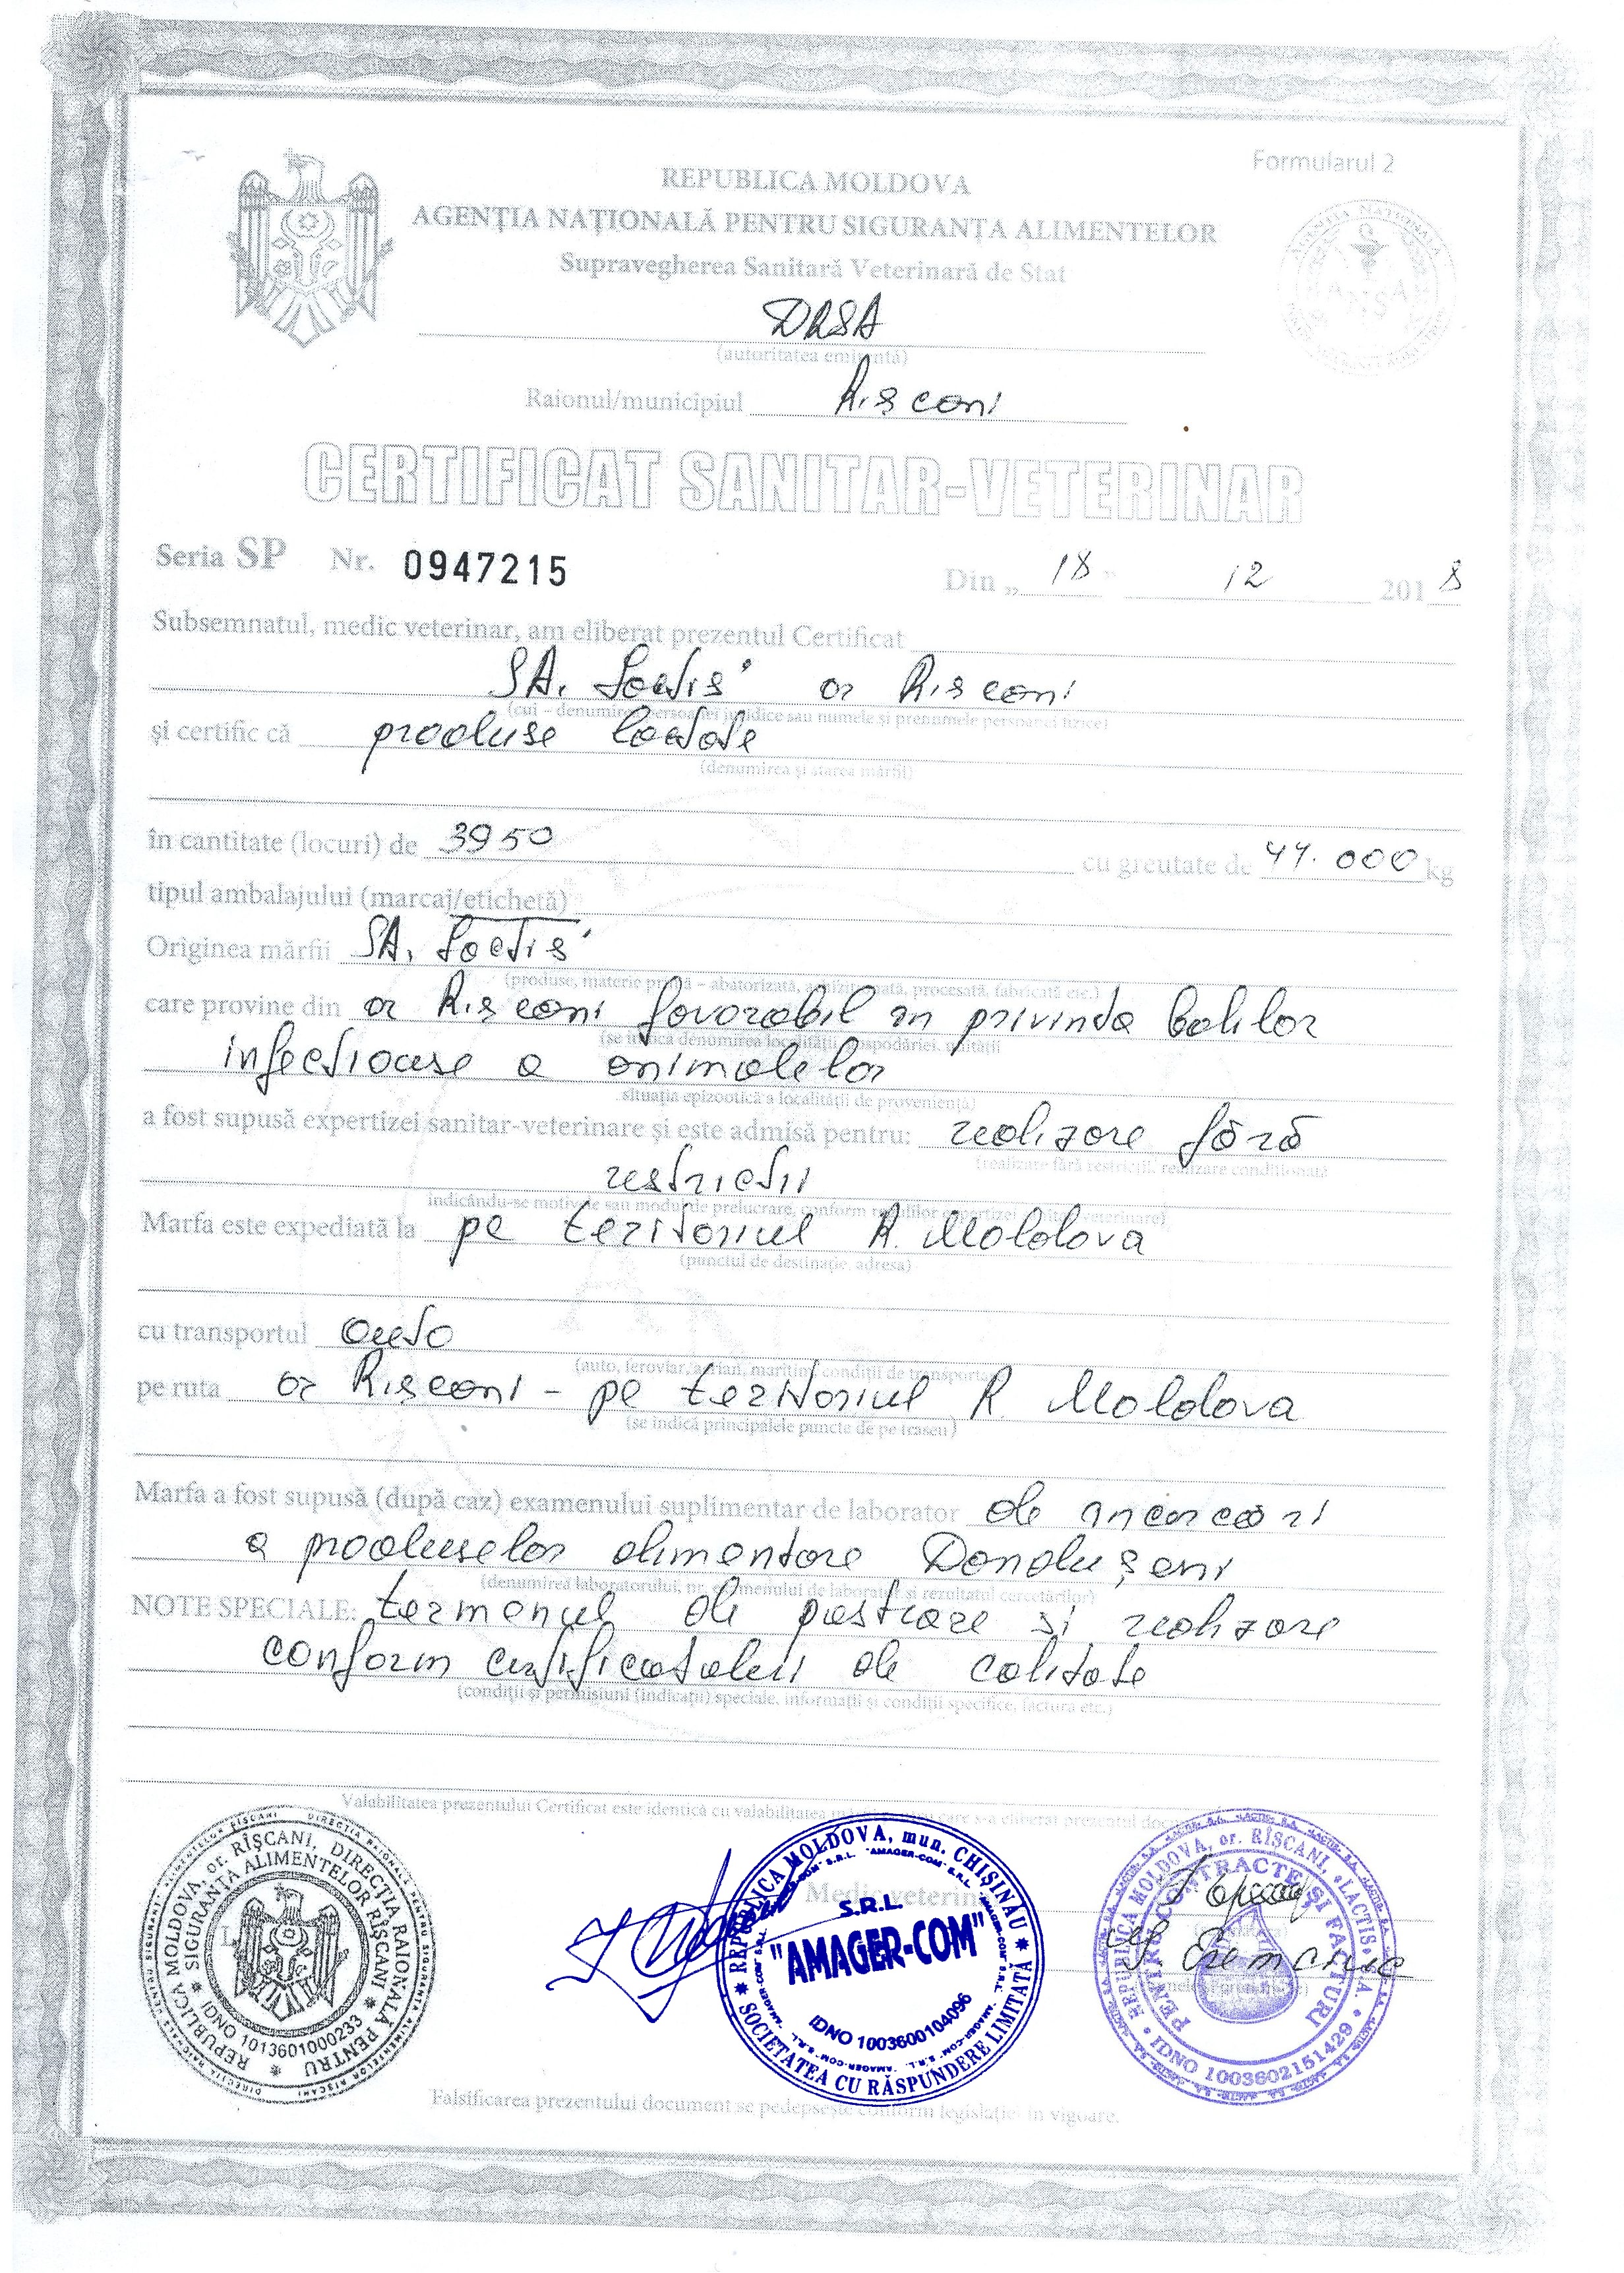 Formularul 2
REPUBLICA MOLDOVA
AGENȚIA NAȚIONALĂ PENTRU SIGURANȚA ALIMENTELOR
Supravegherea Sanitară Veterinară de Stat
DRSA
(autoritatea emitentă)
Raionul/municipiul Rîșcani
CERTIFICAT SANITAR-VETERINAR
Seria SP Nr. 0947215 Din „ 18 " 12 2018
Subsemnatul, medic veterinar, am eliberat prezentul Certificat
SA. Lactis" or Rîșcani
(cui – denumirea persoanei juridice sau numele și prenumele persoanei fizice)
și certific că produse lactate
(denumirea și starea mărfii)
în cantitate (locuri) de 3950 cu greutate de 44.000 kg
tipul ambalajului (marcaj/etichetă)
Originea mărfii SA. Lactis"
(produse, materie primă – abatorizată, achiziționată, procesată, fabricată etc.)
care provine din or Rîșcani favorabil în privința bolilor
(se indică denumirea localității, gospodăriei, unității
infecțioase a animalelor
situația epizootică a localității de proveniență)
a fost supusă expertizei sanitar-veterinare și este admisă pentru: realizare fără
(realizate fără restricții, realizare condiționată
restricții
indicându-se motivele sau modul de prelucrare, conform regulilor expertizei sanitar-veterinare)
Marfa este expediată la pe teritoriul R. Moldova
(punctul de destinație, adresa)
cu transportul auto
(auto, feroviar, aerian, maritim, condiții de transportare)
pe ruta or Rîșcani - pe teritoriul R. Moldova
(se indică principalele puncte de pe traseu)
Marfa a fost supusă (după caz) examenului suplimentar de laborator de încercări
a produselor alimentare Dondușeni
(denumirea laboratorului, nr. examenului de laborator și rezultatul cercetărilor)
NOTE SPECIALE: termenul de păstrare și realizare
conform certificatului de calitate
(condiții și permisiuni (indicații) speciale, informații și condiții specifice, factura etc.)
Valabilitatea prezentului Certificat este identică cu valabilitatea mărfii pentru care s-a eliberat prezentul document
Medic veterinar
REPUBLICA MOLDOVA, or. RÎȘCANI, DIRECȚIA RAIONALĂ PENTRU
SIGURANȚA ALIMENTELOR RÎȘCANI
IDNO 1013601000233
REPUBLICA MOLDOVA, mun. CHIȘINĂU
S.R.L.
"AMAGER-COM"
IDNO 1003600104096
SOCIETATEA CU RĂSPUNDERE LIMITATĂ
REPUBLICA MOLDOVA, or. RÎȘCANI, «LACTIS» SA
PENTRU CONTRACTE ȘI FACTURI
IDNO 1003602151429
Falsificarea prezentului document se pedepsește conform legislației în vigoare.